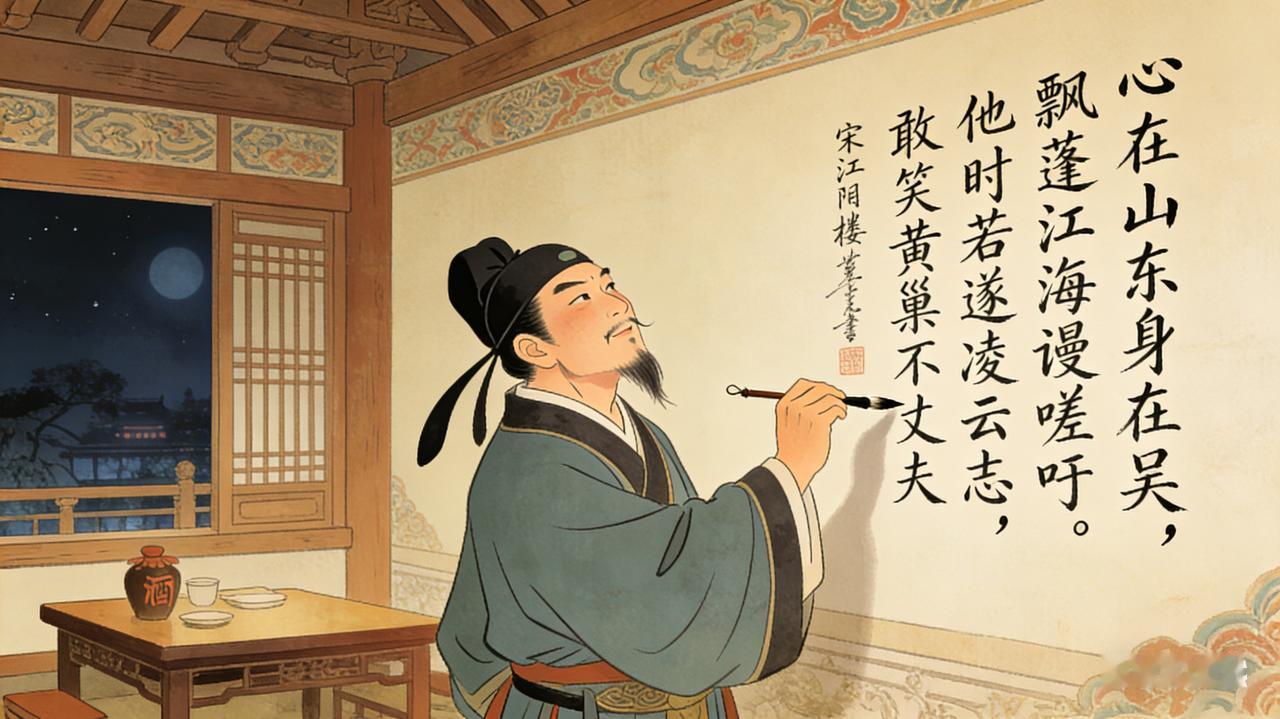 心在山东身在吴，
飘蓬江海谩嗟吁。
他时若遂凌云志，
敢笑黄巢不丈夫
宋江阳楼
酒